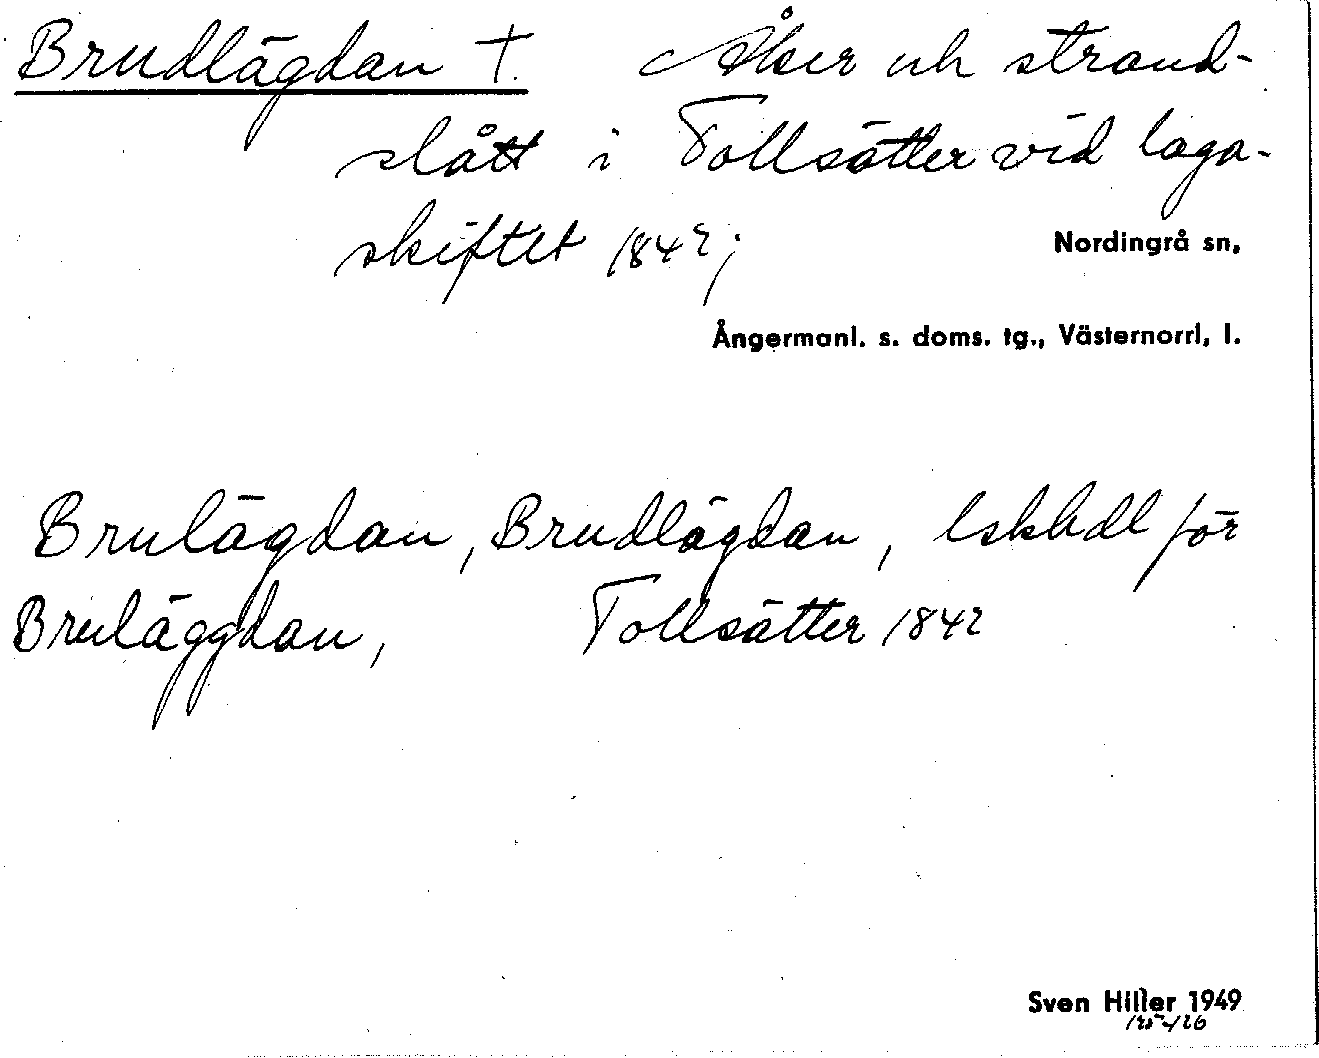 Brudlägdan †. Åker och strand-
slått i Tollsätter vid laga-
skiftet 1842;
Nordingrå sn,
Ångermanl. s. doms. tg., Västernorrl, l.
Brulägdan, Brudlägdan, lskhdl för
Bruläggdan, Tollsätter 1842
Sven Hiller 1949